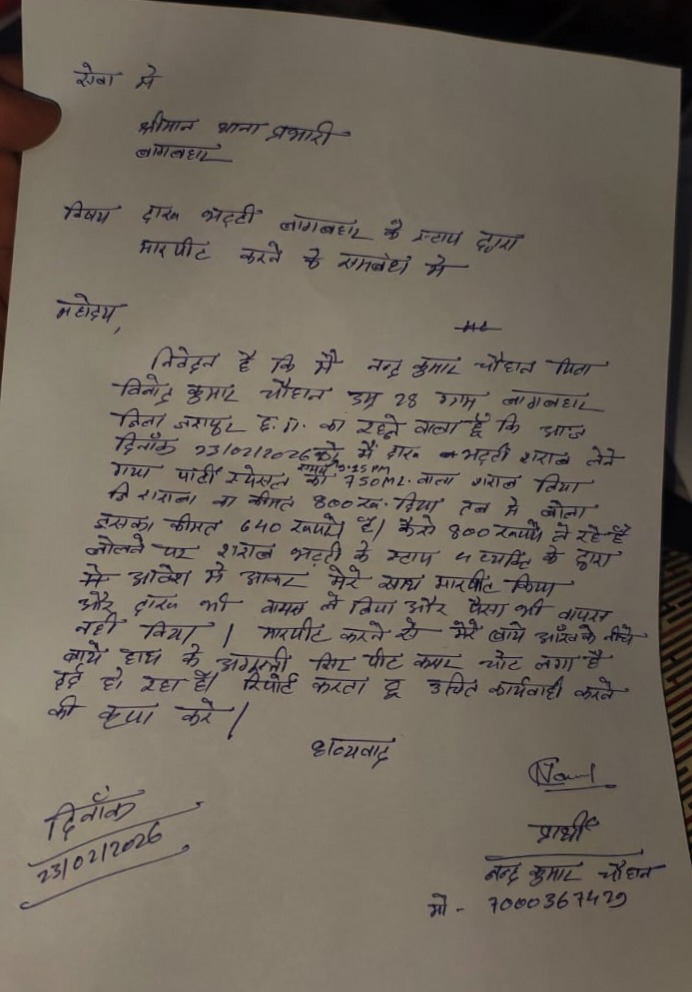 सेवा मे
श्रीमान थाना प्रभारी
बागबहार
विषय दारू भट्टी बागबहार के स्टाप द्वारा
मारपीट करने के सम्बंध मे
महोदय,
निवेदन है कि मै नन्द कुमार चौहान पिता
विनोद कुमार चौहान उम्र 28 ग्राम बागबहार
जिला जशपुर छ.ग. का रहने वाला हूँ कि आज
दिनाँक 23/02/2026 को मैं दारू भट्टी शराब लेने
समय 3:15 PM
गया पार्टी स्पेसल का 750ML. वाला शराब लिया
शराब का कीमत 800 रू. लिया तब मे बोला
इसका कीमत 640 रूपये है। कैसे 800 रूपये ले रहे है
बोलने पर शराब भट्टी के स्टाप 4 व्यक्ति के द्वारा
मे आवेश मे आकर मेरे साथ मारपीट किया
और दारू भी वापस ले लिया और पैसा भी वापस
नही दिया। मारपीट करने से मेरे बाये आँख के नीचे
बाये हाथ के सिर पीट कमर चोट लगा है
दर्द हो रहा है। रिपोर्ट करता हू उचित कार्यवाही करने
की कृपा करे।
धन्यवाद
दिनाँक
23/02/2026
प्रार्थी
नन्द कुमार चौहान
मो - 7000367429